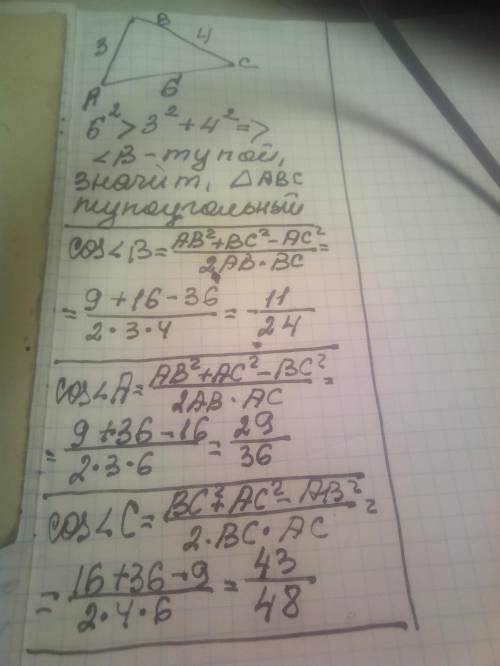 B
3
4
C
A
6
6² > 3² + 4² =>
∠B - тупой,
значит, △ABC
тупоугольный
cos∠B = (AB² + BC² - AC²)/(2AB · BC) =
= (9 + 16 - 36)/(2 · 3 · 4) = -11/24
cos∠A = (AB² + AC² - BC²)/(2AB · AC) =
= (9 + 36 - 16)/(2 · 3 · 6) = 29/36
cos∠C = (BC² + AC² - AB²)/(2 · BC · AC) =
= (16 + 36 - 9)/(2 · 4 · 6) = 43/48